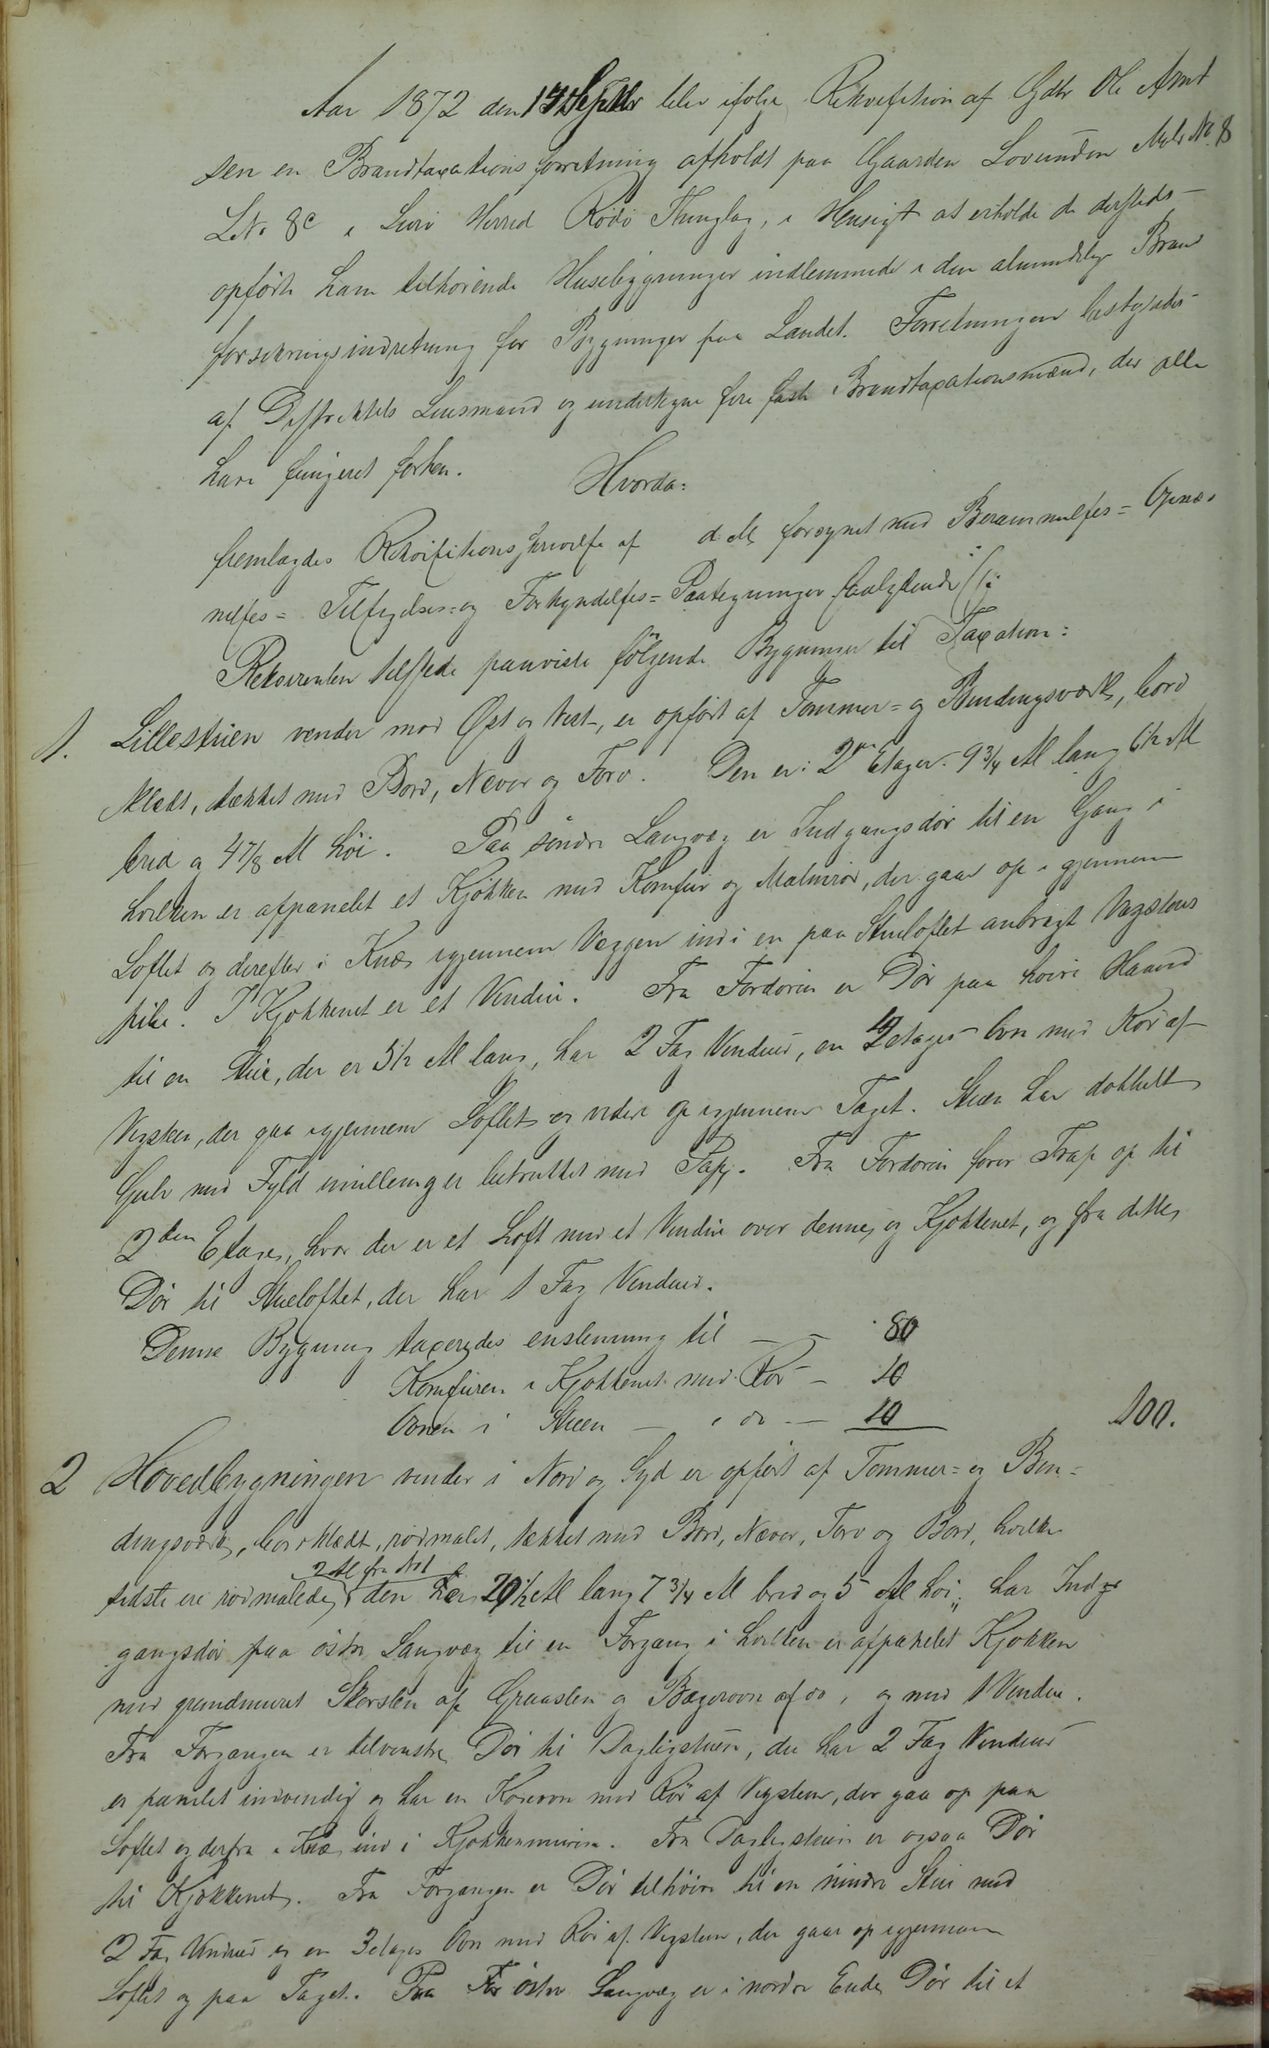 Aar 1872 den 17 Septbr blev ifølge Rekvisition af Gdbr Ole Arnt
sen en Brandtaxationsforretning afholdt paa Gaarden Lovunden Matr No 8
LNo 8c i Lurø Herred Rødø Thinglag, i Hensigt at erholde de dersteds
opførte ham tilhørende Husebygninger indlemmede i den almindelige Brand
forsikringsindretning for Bygninger paa Landet. Forretningen bestyredes
af Distriktets Lensmand og undertegnede fire faste Brandtaxationsmænd, der alle
have fungeret forhen.
Hvorda:
fremlagdes Rekvisitionsskrivelse af d. M. forsynet med Berammelses= Opnæv
nelses= Tilsigelses= og Forkyndelses= Paategninger saalydende
Rekvirenten tilstede paaviste følgende Bygninger til Taxation:
1. Lillestuen vender mod Øst og Vest, er opført af Tømmer= og Bindingsværk, bord
klædt, tækket med Bord, Næver og Torv. Den er i 2de Etager. 9 3/4 Al lang 6 1/2 Al
bred og 4 7/8 Al høi. Paa søndre Langvæg er Indgangsdør til en Gang i
hvilken er afpanelet et Kjøkken med Komfur og Malmrør, der gaar op igjennem
Loftet og derefter i Knæ igjennem Væggen ind i en paa Stueloftet anbragt Vegstens
pibe. I Kjøkkenet er et Vindu. Fra Fordøren er Dør paa høire Haand
til en Stue, der er 5 1/2 Al lang, har 2 Fag Vinduer, en 2 etages Ovn med Rør af
Vegsten, der gaa igjennem Loftet og videre op igjennem Taget. Stuen har dobbelt
Gulv med Fyld imellem og er betrukket med Papp. Fra Fordøren fører Trap op til
2den Etage, hvor der er et Loft med et Vindu over denne og Kjøkkenet, og fra dette
Dør til Stueloftet, der har 1 Fag Vinduer.
Denne Bygning taxeredes enstemmig til — — 80
Komfuren i Kjøkkenet med Rør — 10
Ovnen i Stuen — i do — 10 100.
2 Hovedbygningen vender i Nord og Syd er opført af Tømmer= og Bin=
dingsværk, bordklædt, rødmalet, tækket med Bord, Næver, Torv og Bord, hvilke
2 Al fra No 1
sidste ere rødmalede, den er 20 1/2 Al lang 7 3/4 Al bred og 5 Al høi; har Ind
gangsdør paa østre Langvæg til en Forgang i hvilken er afpanelet Kjøkken
med grundmuret Skorsten af Graasten og Bagerovn af do, og med 1 Vindu.
Fra Forgangen er tilvenstre Dør til Dagligstuen, der har 2 Fag Vinduer
er panelet indvendig og har en Kakelovn med Rør af Vegsten, der gaa op paa
Loftet og derfra i Knæ ind i Kjøkkenmuren. Fra Dagligstuen er ogsaa Dør
til Kjøkkenet. Fra Forgangen er Dør tilhøire til en mindre Stue med
2 Fag Vinduer og en 3 etages Ovn med Rør af Vegsten, der gaar op igjennem
Loftet og paa Taget. Paa østre Langvæg er i nordre Ende Dør til et